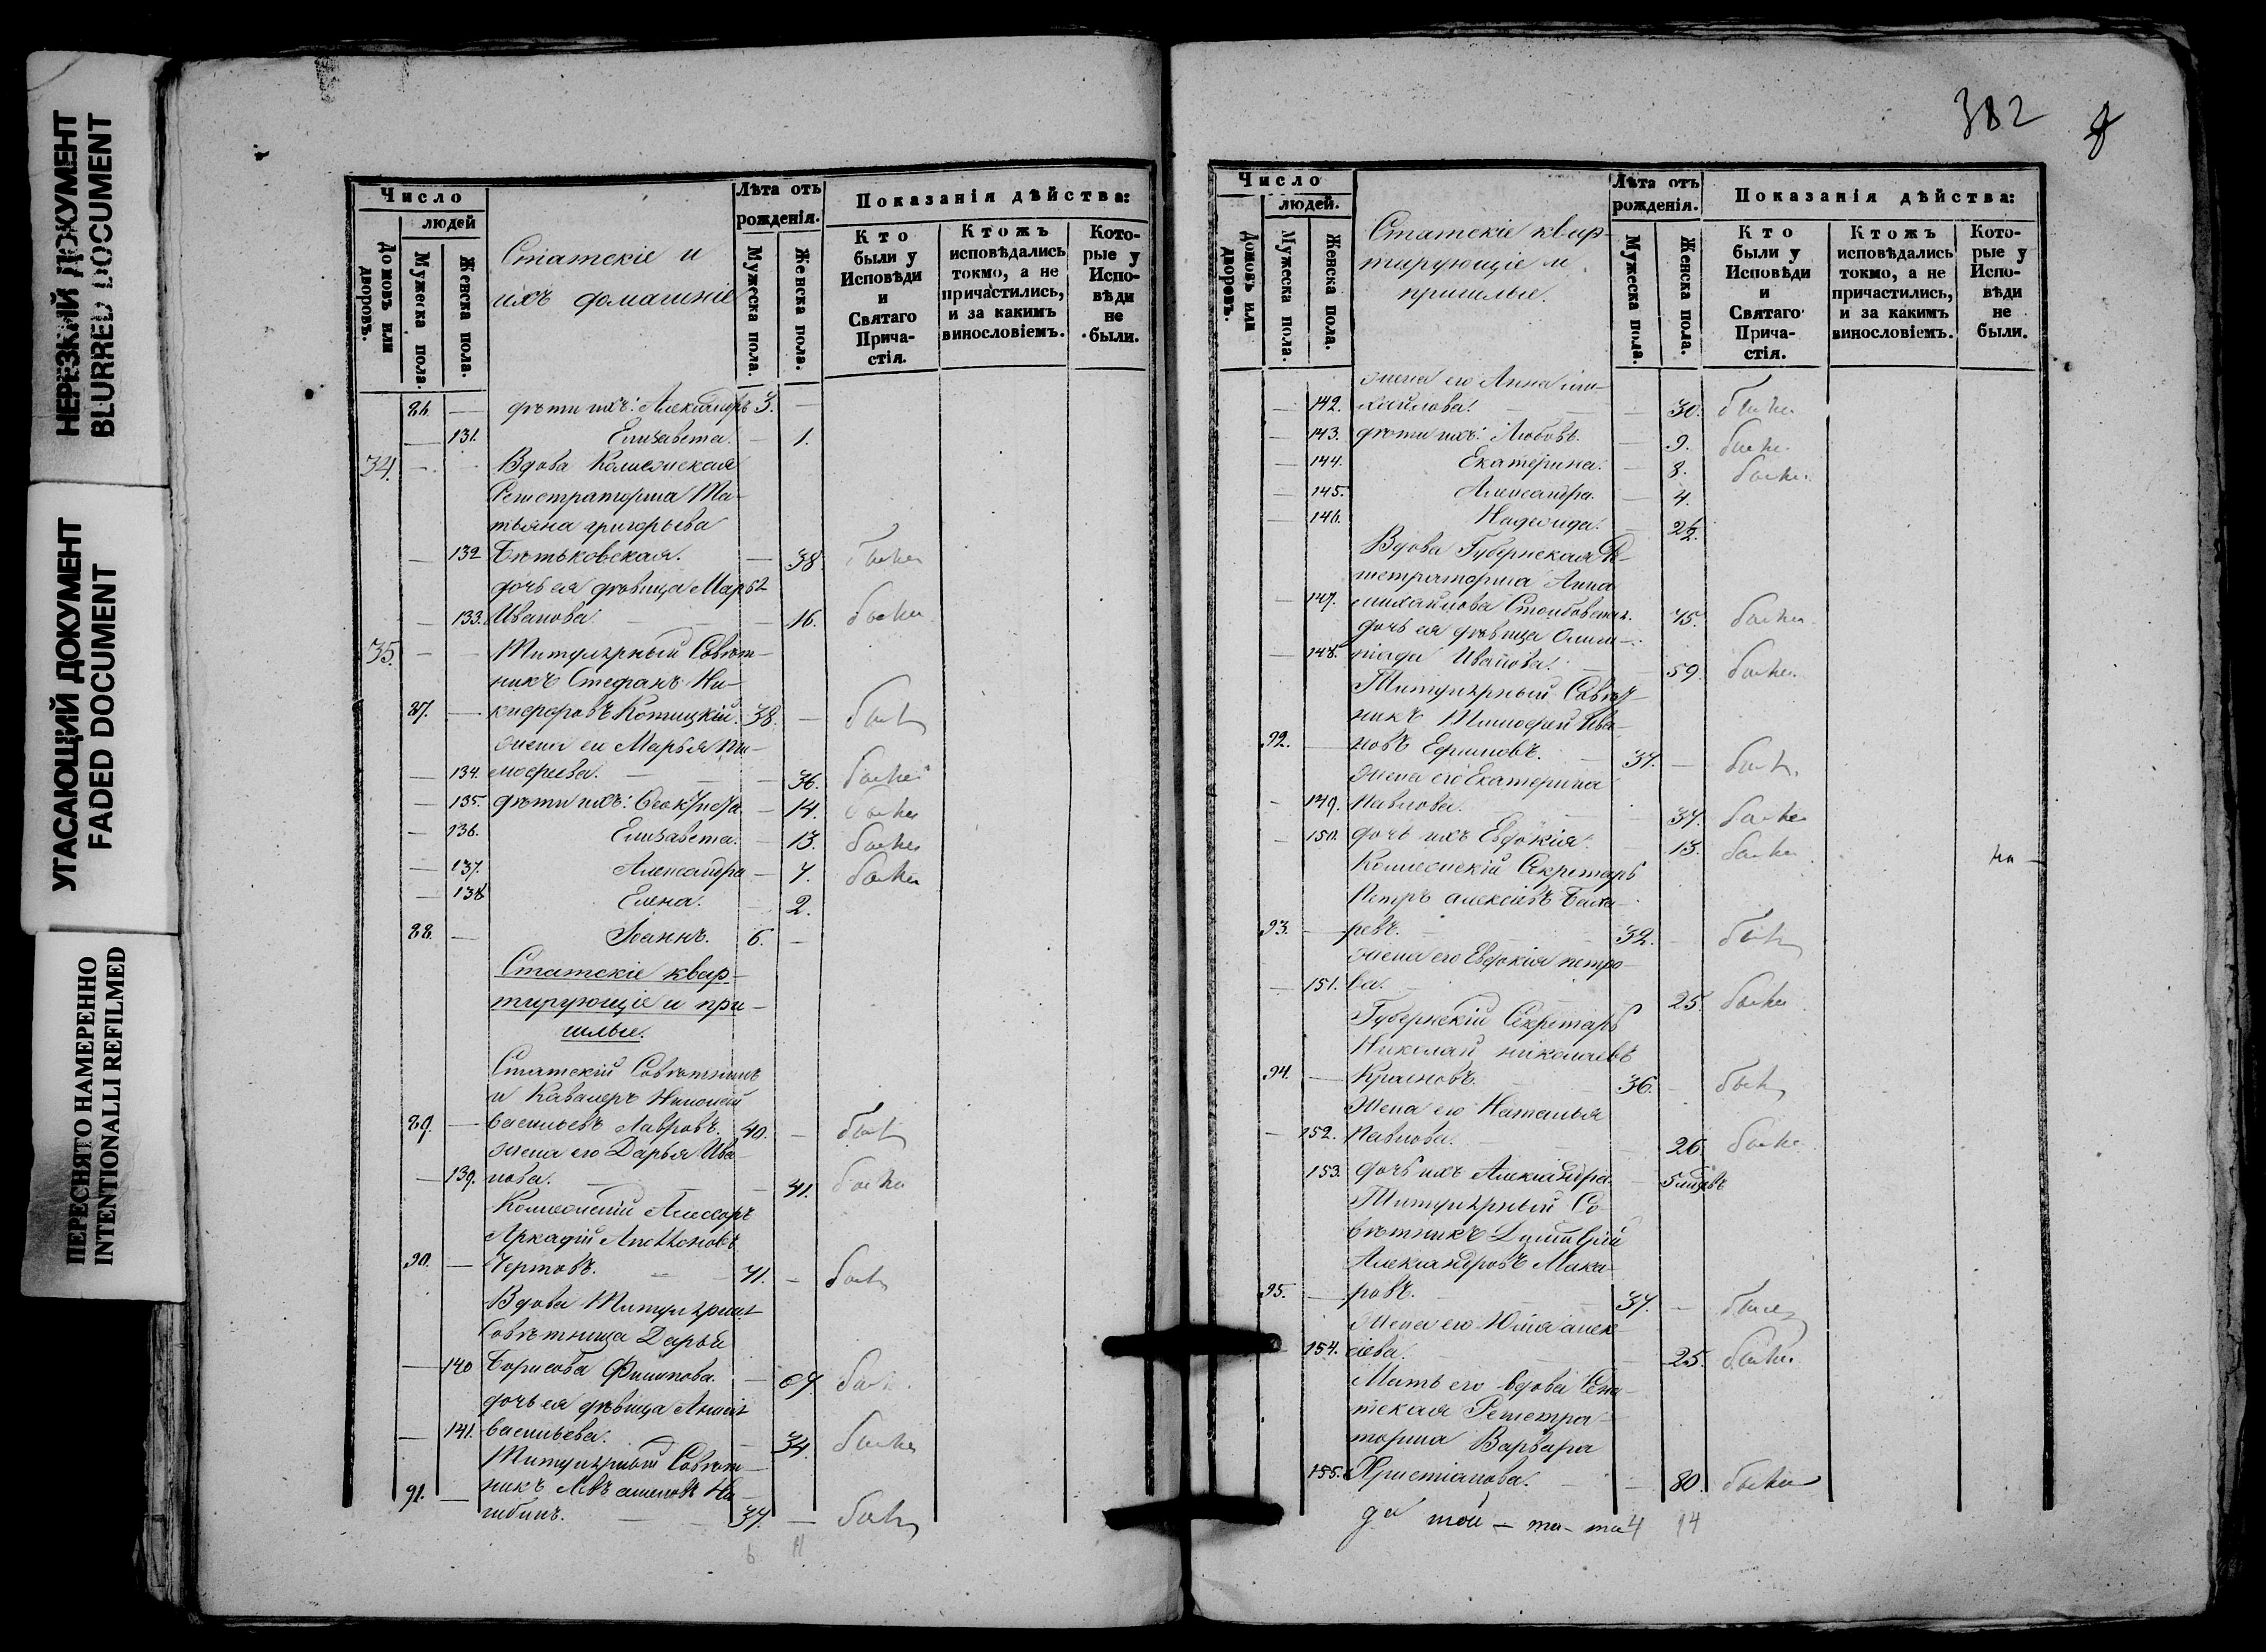 НЕРЕЗКИЙ ДОКУМЕНТ
BLURRED DOCUMENT
УГАСАЮЩИЙ ДОКУМЕНТ
FADED DOCUMENT
ПЕРЕСНЯТО НАМЕРЕННО
INTENTIONALLI REFILMED
Число
людей
Домовъ или дворовъ.
Мужеска пола.
Женска пола.
Статскіе и
ихъ домашніе
Лѣта отъ рожденія.
Мужеска пола.
Женска пола.
Показанія дѣйства:
Кто были у Исповѣди и Святаго Причастія.
Ктожъ исповѣдались токмо, а не причастились, и за какимъ винословіемъ.
Которые у Исповѣди не были.
86 — дѣти ихъ: Александръ 3. —
— 131. Елизавета. — 1.
34. — Вдова Коллежская
Регистраторша Та-
тьяна григорьева
— 132 Бѣтьковская. — 38 была
дочь ея дѣвица Марья
— 133. Иванова — 16. была
35. — — Титулярный Совѣт-
никъ Стефанъ Ни-
87. — кифоровъ Котицкій. 38. — былъ
жена ег Марья Ти-
— 134. мофеева. — 36. была
— 135. дѣти ихъ: Ѳеоктиста. — 14. была
— 136. Елизавета. — 13. была
— 137. Александра — 7. была
— 138 Елена. — 2.
88. — Іоаннъ. 6. —
Статскіе квар-
тирующіе и при-
шлые.
Статскій Совѣтникъ
и Кавалеръ Николай
89. — васильевъ Лавровъ. 40. — былъ
жена его Дарья Ива-
— 139. нова. — 41. была
Коллежскій Ассесоръ
Аркадій
90. — Чертовъ. 41. — былъ
Вдова Титулярная
Совѣтница Дарья
— 140 Борисова Филипова. — 69 была
дочь ея дѣвица
— 141. васильева. — 34. была
Титулярный Совѣт-
91. — никъ
гибинъ. — 37. — былъ
6 11
382
Число
людей.
Домовъ или дворовъ.
Мужеска пола.
Женска пола.
Статскіе квар-
тирующіе и
пришлые.
Лѣта отъ рожденія.
Мужеска пола.
Женска пола.
Показанія дѣйства:
Кто были у Исповѣди и Святаго Причастія.
Ктожъ исповѣдались токмо, а не причастились, и за какимъ винословіемъ.
Которые у Исповѣди не были.
жена его Анна ми-
— 142. хайлова. — 30. была
— 143. дѣти ихъ: Любовь. — 9. была
— 144. Екатерина. — 8. была
— 145. Александра. — 4.
— 146. Надежда. — 2½
Вдова Губернская Ре-
гистраторша Анна
— 147. михайлова Столбовская. 75. была
дочь ея дѣвица Олим-
— 148. піада Иванова. — 59. была
Титулярный Совѣт-
никъ Тимофей Ива-
92. — новъ Ефимовъ. 37. — былъ
жена его Екатерина
— 149. Павлова. 37. была
— 150. дочь ихъ Евдокія. 13. была
Коллежскій Секретарь
Петръ алексіевъ
93. — ревъ. 32. — былъ
жена его Евдокія петро-
— 151. ва. — 25. была
Губернскій Секретарь
Николай николаевъ
94. — Красновъ. 36. — былъ
Жена его Наталья
— 152. Павлова. — 26. была
153. дочь ихъ Александра. — 5 мѣсяцевъ
Титулярный Со-
вѣтникъ Димитрій
Александровъ Мака-
95. — ровъ. 37. — былъ
Жена его Юлія алек-
— 154. сіева. — 25. была
Мать его вдова Сена-
тская Регистра-
торша Варвара
155. Христіанова. — 80. была
4 14